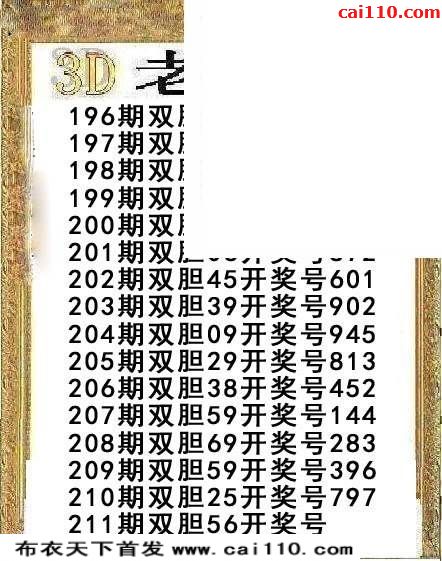 cai110.com
3D 老
196期双胆
197期双胆
198期双胆
199期双胆
200期双胆
201期双胆
202期双胆45开奖号601
203期双胆39开奖号902
204期双胆09开奖号945
205期双胆29开奖号813
206期双胆38开奖号452
207期双胆59开奖号144
208期双胆69开奖号283
209期双胆59开奖号396
210期双胆25开奖号797
211期双胆56开奖号
布衣天下首发 www.cai110.com